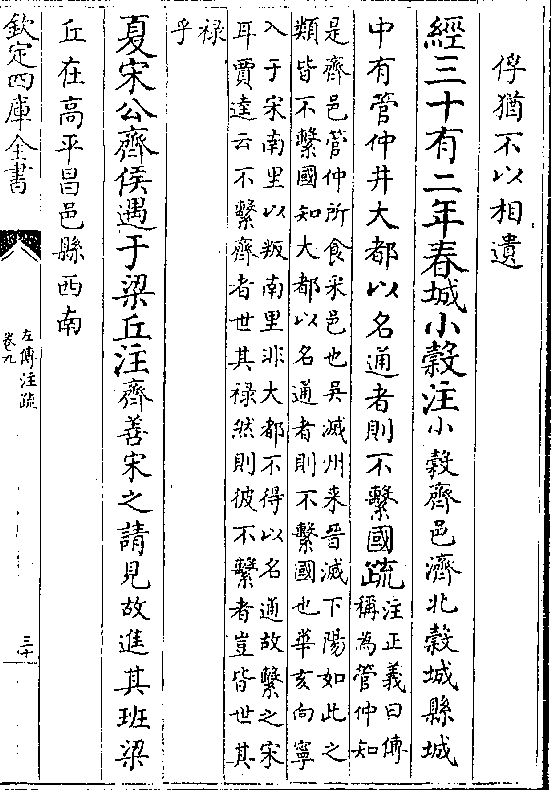 俘猶不以相遺
經三十有二年春城小穀注小穀齊邑濟北穀城縣城
中有管仲井大都以名通者則不繫國疏注正義曰傳
稱為管仲知
是齊邑管仲所食采邑也吳滅州来晉滅下陽如此之
類皆不繫國知大都以名通者則不繫國也華亥向寧
入于宋南里以叛南里非大都不得以名通故繫之宋
耳賈逵云不繫齊者世其禄然則彼不繫者豈皆世其
禄
乎
夏宋公齊侯遇于梁丘注齊善宋之請見故進其班梁
丘在高平昌邑縣西南
欽定四庫全書
左傳注疏
卷九
三十